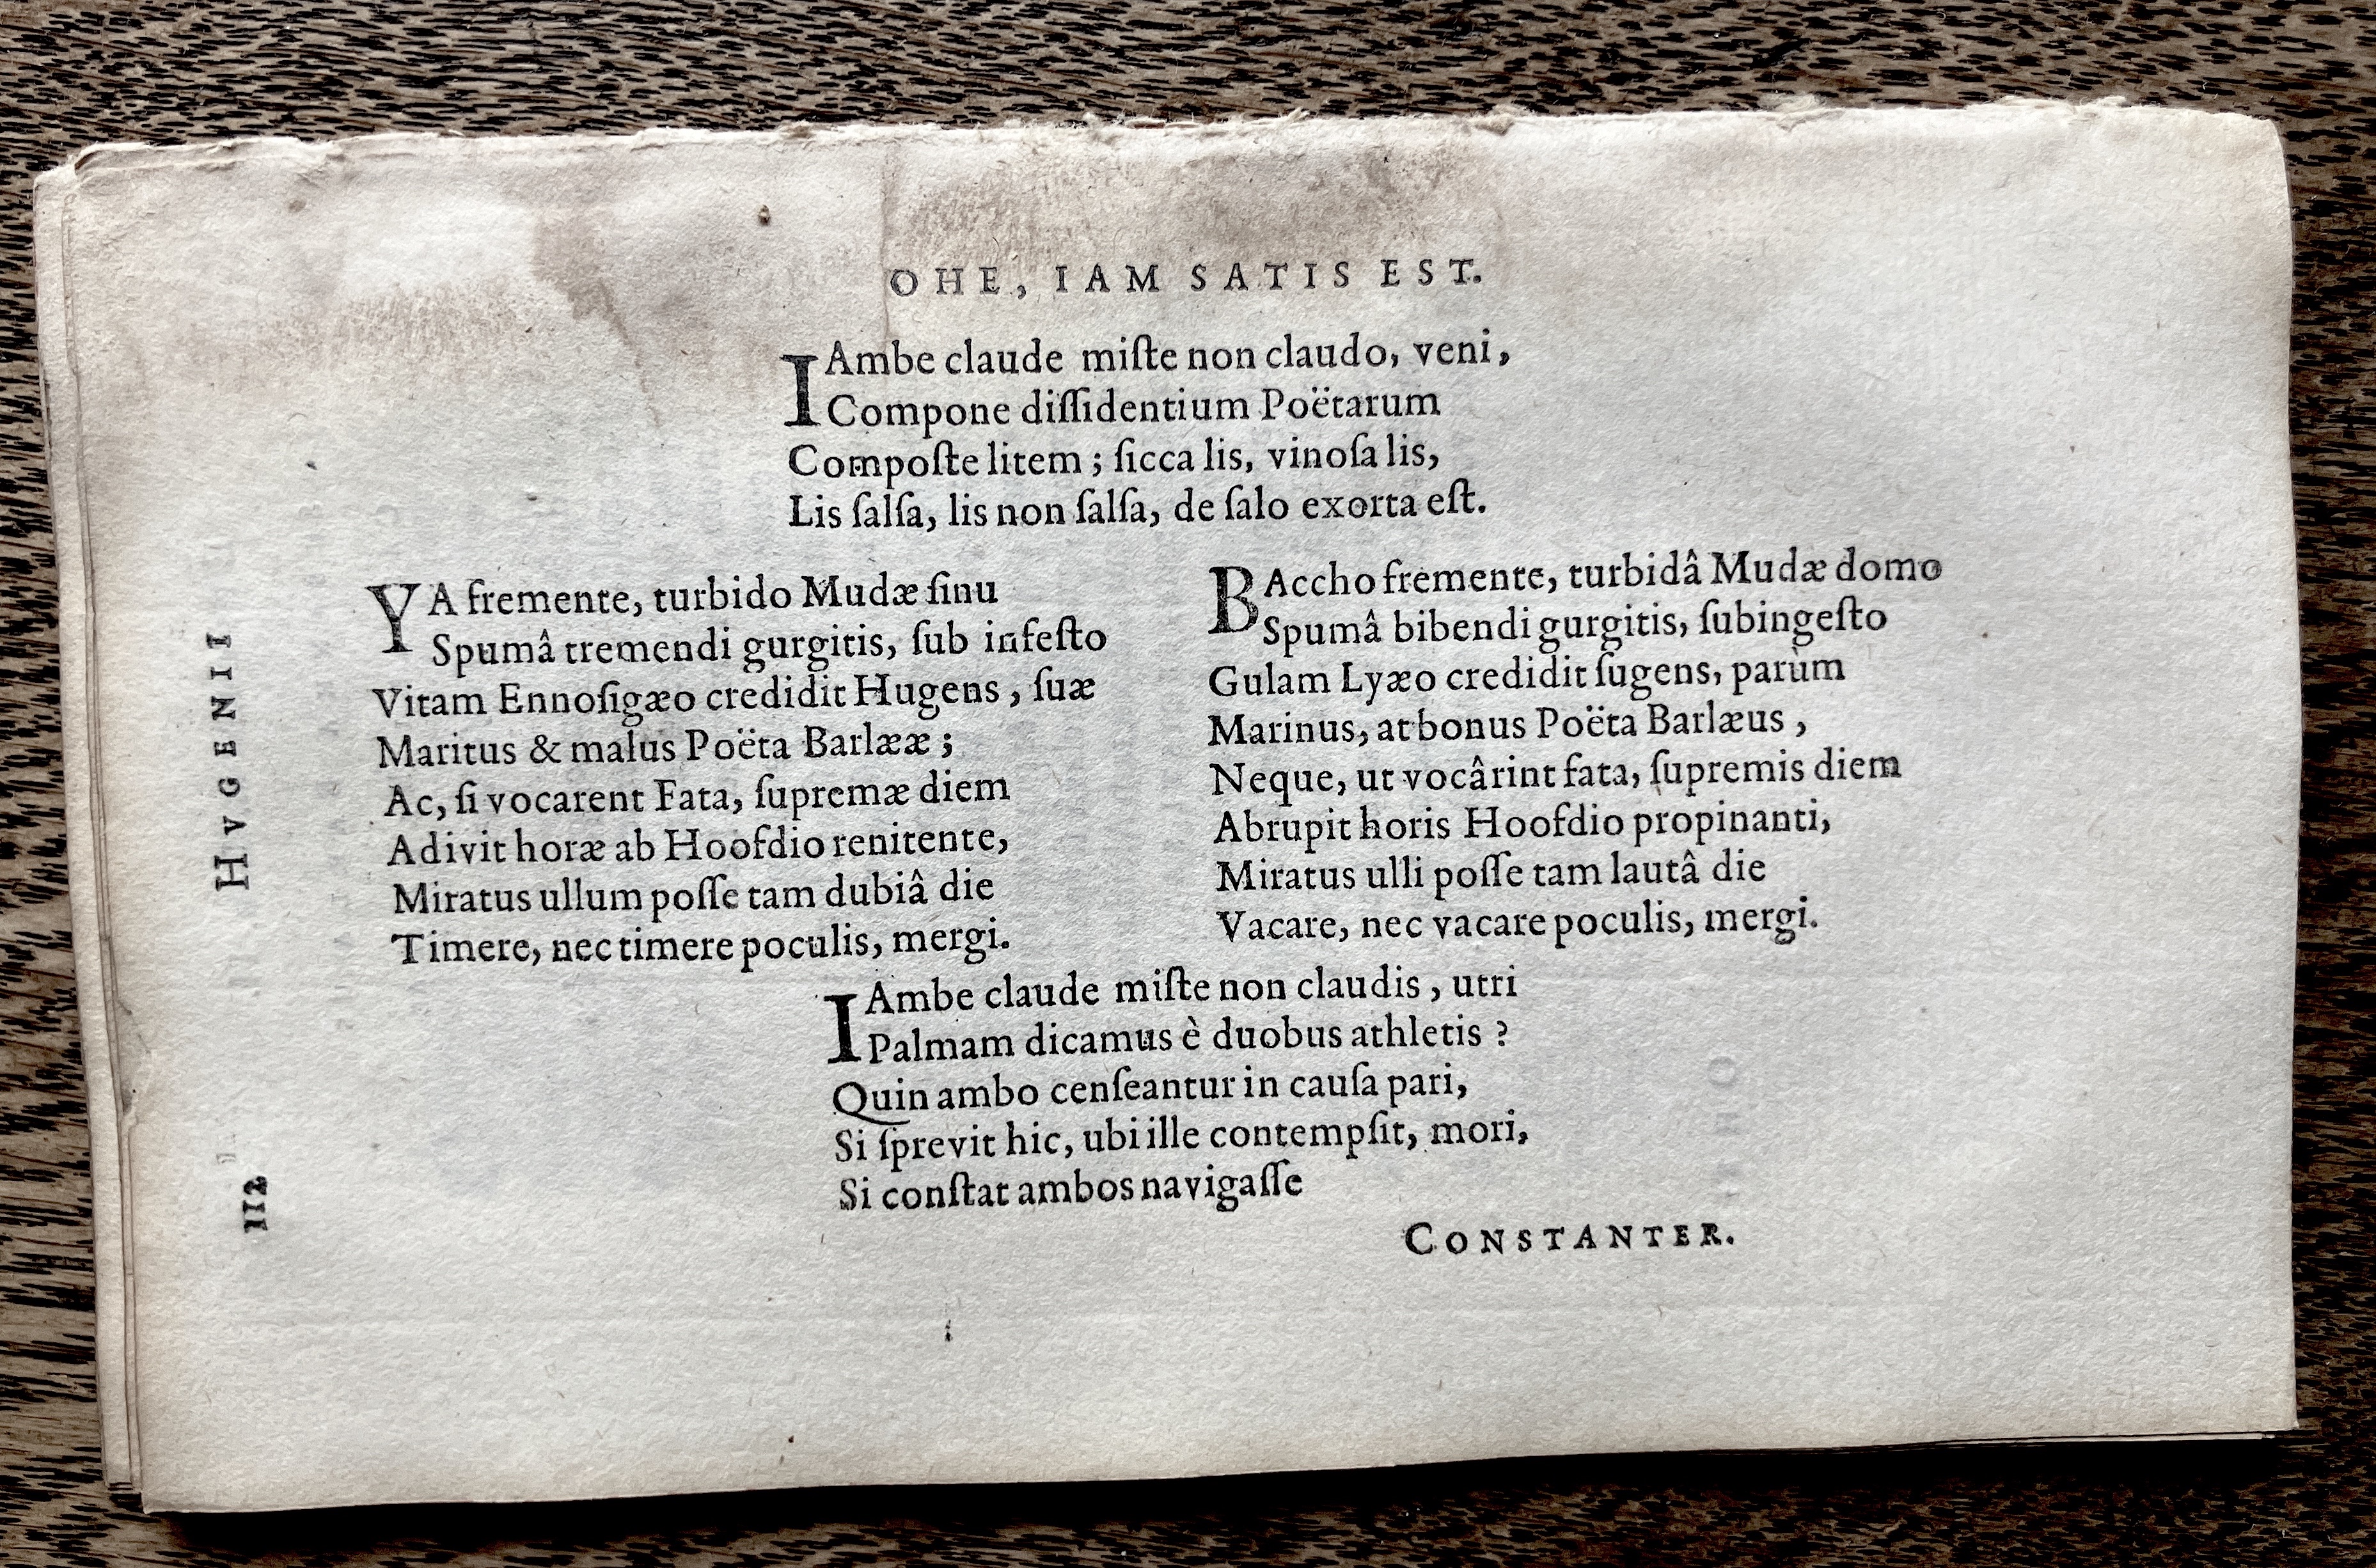 OHE, IAM SATIS EST.
IAmbe claude miſte non claudo, veni,
Compone diſſidentium Poëtarum
Compoſte litem; ſicca lis, vinoſa lis,
Lis ſalſa, lis non ſalſa, de ſalo exorta eſt.
YA fremente, turbido Mudæ ſinu
Spumâ tremendi gurgitis, ſub infeſto
Vitam Ennoſigæo credidit Hugens, ſuæ
Maritus & malus Poëta Barlææ;
Ac, ſi vocarent Fata, ſupremæ diem
Adivit horæ ab Hoofdio renitente,
Miratus ullum poſſe tam dubiâ die
Timere, nec timere poculis, mergi.
BAccho fremente, turbidâ Mudæ domo
Spumâ bibendi gurgitis, ſubingeſto
Gulam Lyæo credidit ſugens, parùm
Marinus, at bonus Poëta Barlæus,
Neque, ut vocârint fata, ſupremis diem
Abrupit horis Hoofdio propinanti,
Miratus ulli poſſe tam lautâ die
Vacare, nec vacare poculis, mergi.
IAmbe claude miſte non claudis, utri
Palmam dicamus è duobus athletis?
Quin ambo cenſeantur in cauſa pari,
Si ſprevit hic, ubi ille contempſit, mori,
Si conſtat ambos navigaſſe
CONSTANTER.
112
HVGENII